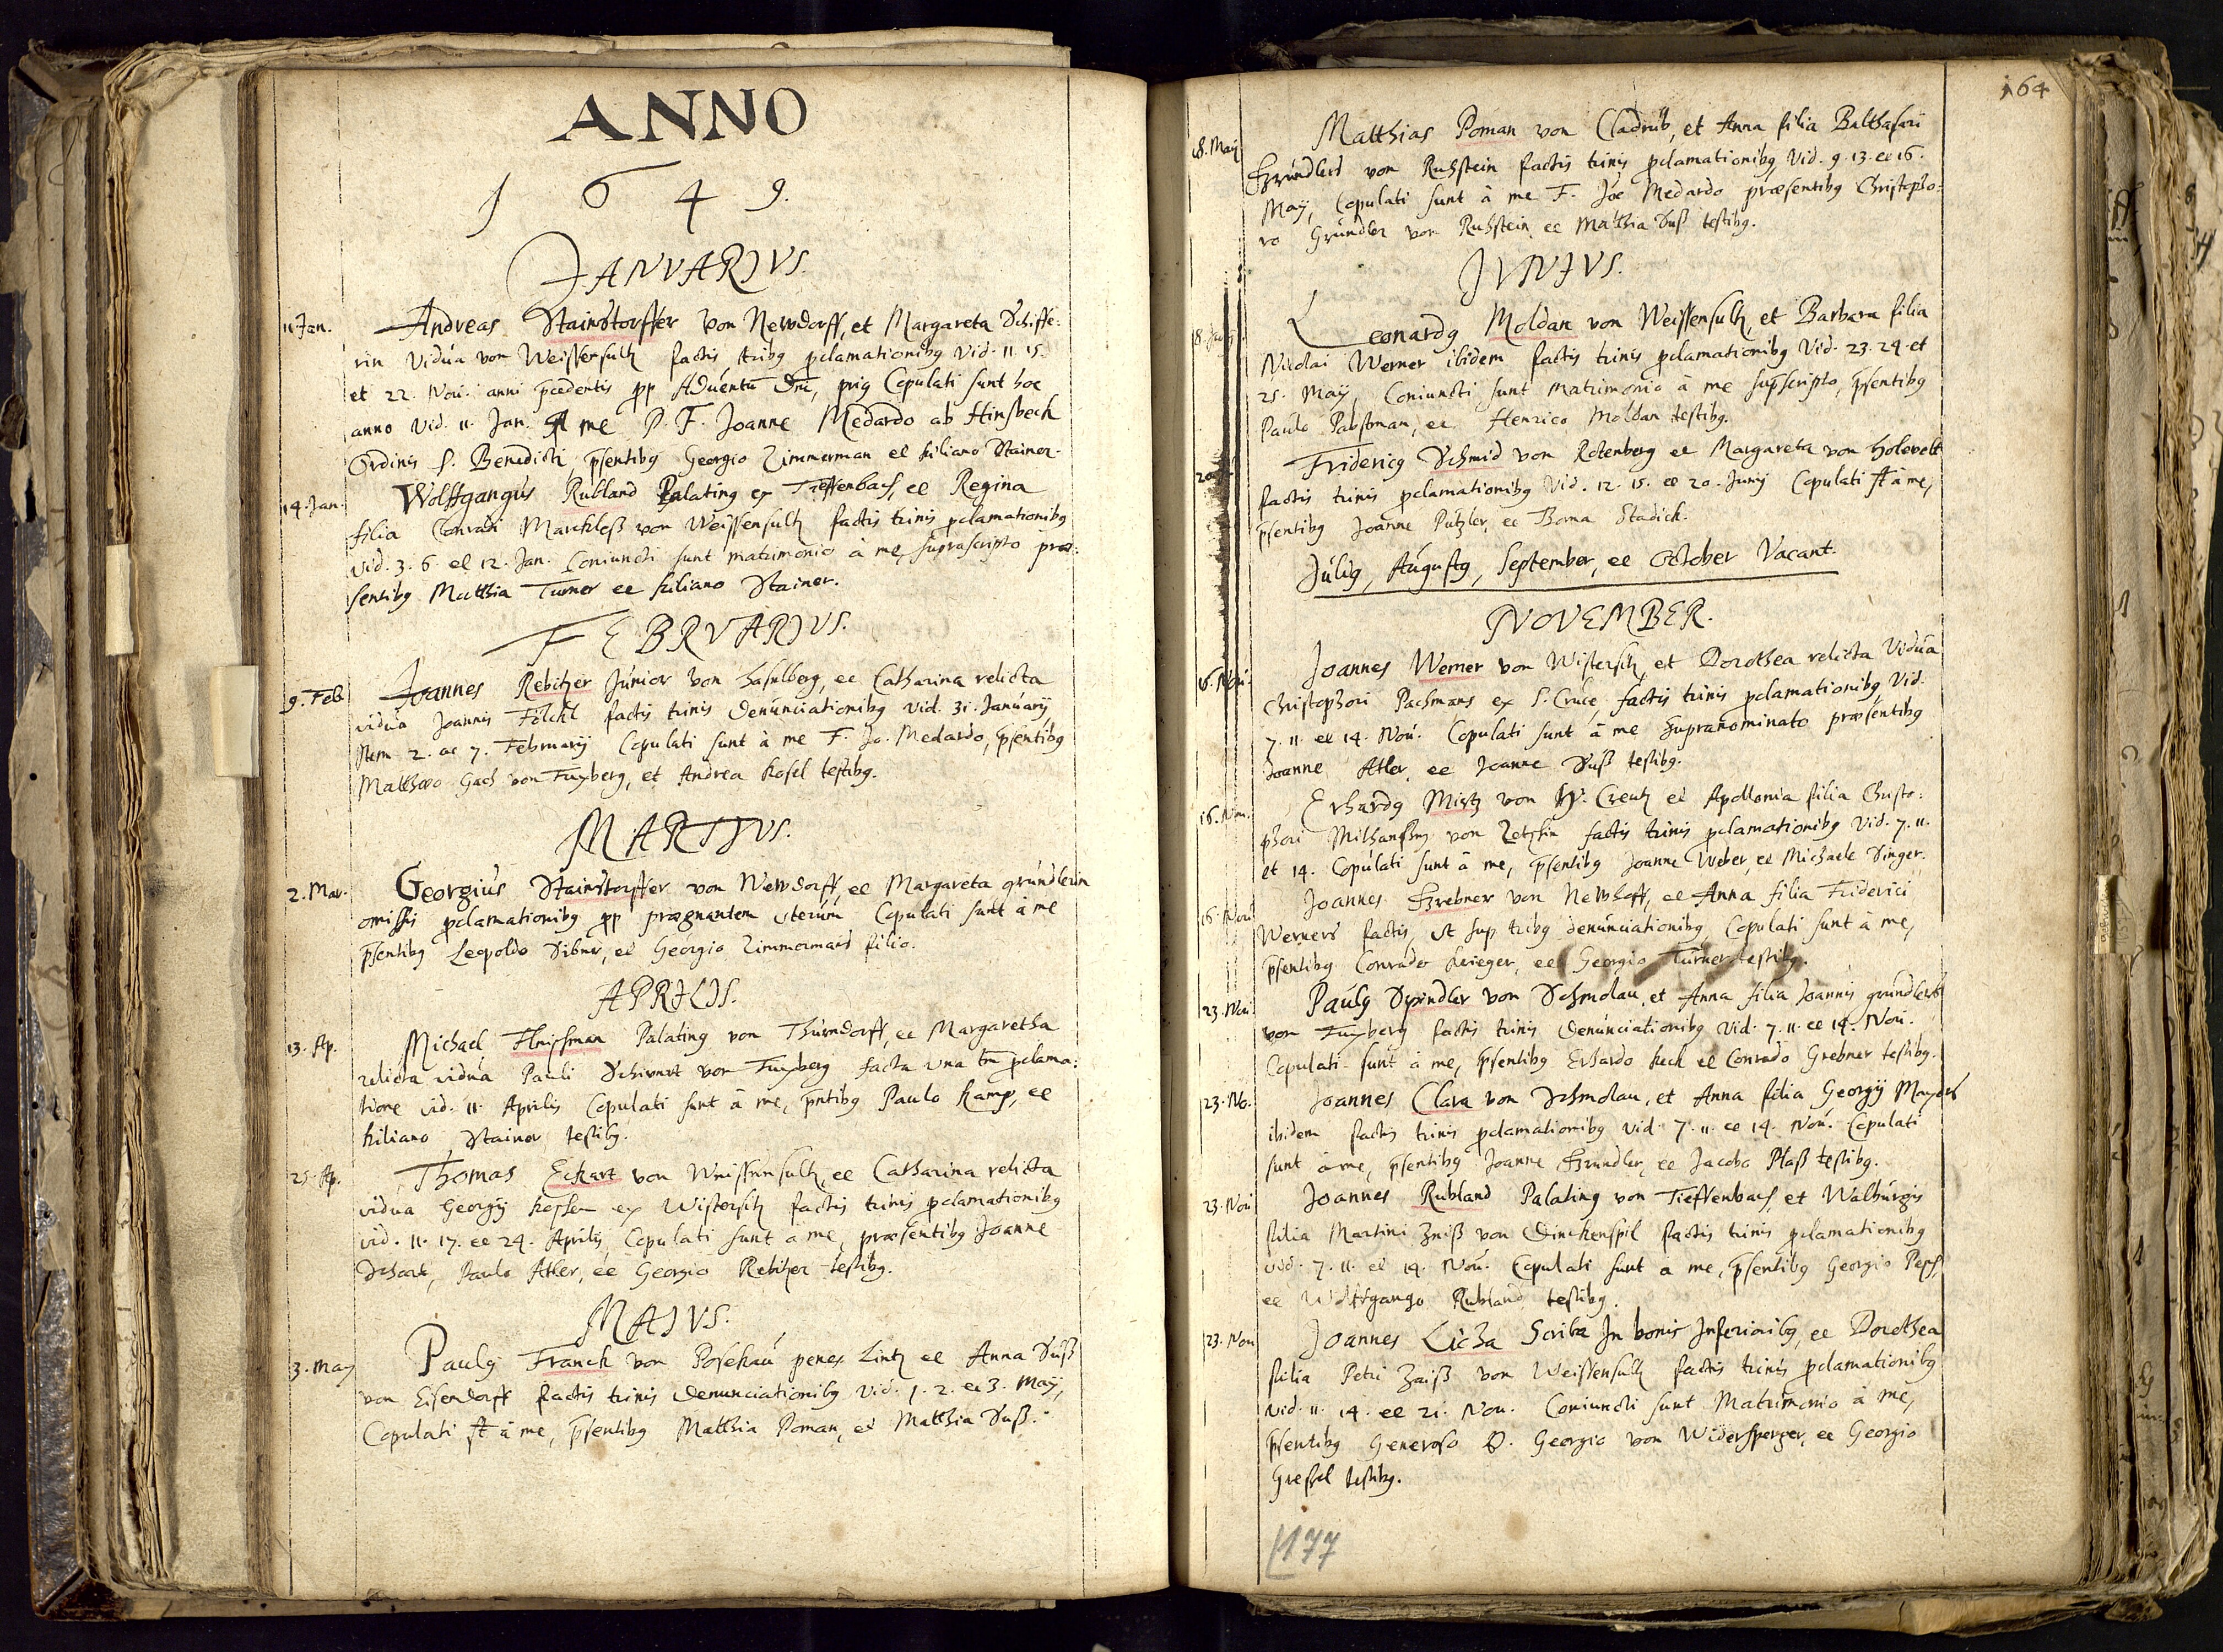 ANNO
1649.
JANVARIVS.
11 Jan. Andreas Stainstorffer von Newdorff, et Margareta Schiffe:
rin Vidúa von Weissensultz factis tribg pclamationibg Vid. 11. 15.
et 22. Nou. anni pcedentis pp Aduentū Dnī, prig Copulati sunt hoc
anno Vid. 11. Jan. A me P. F. Joanne Medardo ab Hinsbeck
Ordinis S. Benedicti, psentibg Georgio Zimmerman et Kiliano Stainer.
14. Jan. Wolffgangús Rubland Palating ex Tieffenbach, et Regina
filia Conradi Marckless von Weissensultz factis trinis pclamationibg
vid. 3. 6. et 12. Jan. Coniuncti sunt matrimonio à me suprascripto præ:
sentibg Matthia Turner et Kiliano Stainer.
FEBRVARIVS.
9. Feb Joannes Rebitzer Júnior von Haselberg, et Catharina relicta
vidúa Joannis Fölckl factis trinis denúnciationibg vid. 31. Januarij
Item 2. ac 7. Februarij Copulati sunt à me F. Jo. Medardo, psentibg
Matthæo Gach von Fuxberg, et Andrea Kosel testibg.
MARTIVS.
2. Mar. Georgiús Stainstorffer von Newdorff, et Margareta gründlerin
omissis pclamationibg pp prægnantem vterúm Copulati sunt à me
psentibg Leopoldo Sibner, et Georgio Zimmermans filio.
APRILIS.
13. Ap. Michael Fleischman Palating von Thúrndorff, et Margaretha
relicta vidúa Pauli von Fuxberg facta vna tm̄ pclama:
tione vid. 11. Aprilis Copulati sunt à me, pntibg Paulo Kamp, et
Kiliano Stainer testibg.
25. Ap. Thomas Eckart von Weissensultz, et Catharina relicta
vidúa Georgij ex Wistersitz factis trinis pclamationibg
vid. 11. 17. et 24. Aprilis, Copulati sunt à me, præsentibg Joanne
Paulo Adler, et Georgio Rebitzer testibg.
MAIVS.
3. May Paulg Franck von Posekaú penes Lintz et Anna Suß
von Eisendorff factis trinis denunciationibg vid. 1. 2. et 3. Maij,
Copulati st à me, psentibg Matthia Poman, et Matthia Suß.
164
18. Maij Matthias Poman von Cladrúb, et Anna filia Balthasari
Gründlers von Ruhstein factis trinis pclamationibg, Vid. 9. 13. et 16.
Maij, Copulati sunt à me F. Joe Medardo præsentibg Christopho:
ro Gründler von Ruhstein, et Matthia Suß testibg.
JVNIVS.
Leonardg Moldan von Weissensultz, et Barbara filia
Nicolai Werner ibidem factis trinis pclamationibg Vid. 23. 24. et
25. Maij, Coniuncti sunt matrimonio à me supscripto, psentibg
Paulo Pabstman, et Henrico Moldan testibg.
Fridericg Schmid von Rotenberg et Margareta von
factis trinis pclamationibg Vid. 12. 15. et 20. Junij Copulati st à me,
psentibg Joanne Pützler, et Thoma Stadick.
Júlig, Aúgustg, September, et October Vacant.
NOVEMBER.
16. Nou. Joannes Werner von Wistersitz, et Dorothea relicta Vidúa
Christophori Pachmans ex S. Cruce, factis trinis pclamationibg, Vid.
7. 11. et 14. Noú. Copulati sunt à me supranominato præsentibg
Joanne Adler, et Joanne Suß testibg.
16. Nou. Erhardg Mirtz von H. Creutz et Apollonia filia Christo:
phori von factis trinis pclamationibg Vid. 7. 11.
et 14. Copúlati sunt à me, psentibg Joanne Weber, et Michaele Singer.
16. Nou Joannes Grebner von Newhoff, et Anna filia Friderici
Werners factis, vt sup tribg denúnciationibg, Copulati sunt à me,
psentibg Conrado Krieger, et Georgio Túrner testibg.
23. Nou Paulg Spindler von Schmolau, et Anna filia Joannis gründlers
von Fuxberg factis trinis denúnciationibg vid. 7. 11. et 14. Nou.
Copulati sunt à me, psentibg Erhardo Keck et Conrado Grebner testibg.
23. No. Joannes Clara von Schmolau, et Anna filia Georgij Mayers
ibidem factis trinis pclamationibg vid. 7. 11. et 14. Noú. Copulati
sunt à me, psentibg Joanne Gründler, et Jacobo Plaß testibg.
23. Nou Joannes Rubland Palating von Tieffenbach, et Walburgis
filia Martini Zeiß von Dinckenspil factis trinis pclamationibg
vid. 7. 11. et 14. Noú. Copulati sunt à me, psentibg Georgio
et Wolffgango Rubland testibg.
23. Nou Joannes Licha Scriba In bonis Inferioribg, et Dorothea
filia Petri Zaiß von Weissensultz factis trinis pclamationibg
vid. 11. 14. et 21. Nou. Coniuncti sunt Matrimonio à me,
psentibg Generoso D. Georgio von Widersperger, et Georgio
Gressel testibg.
177